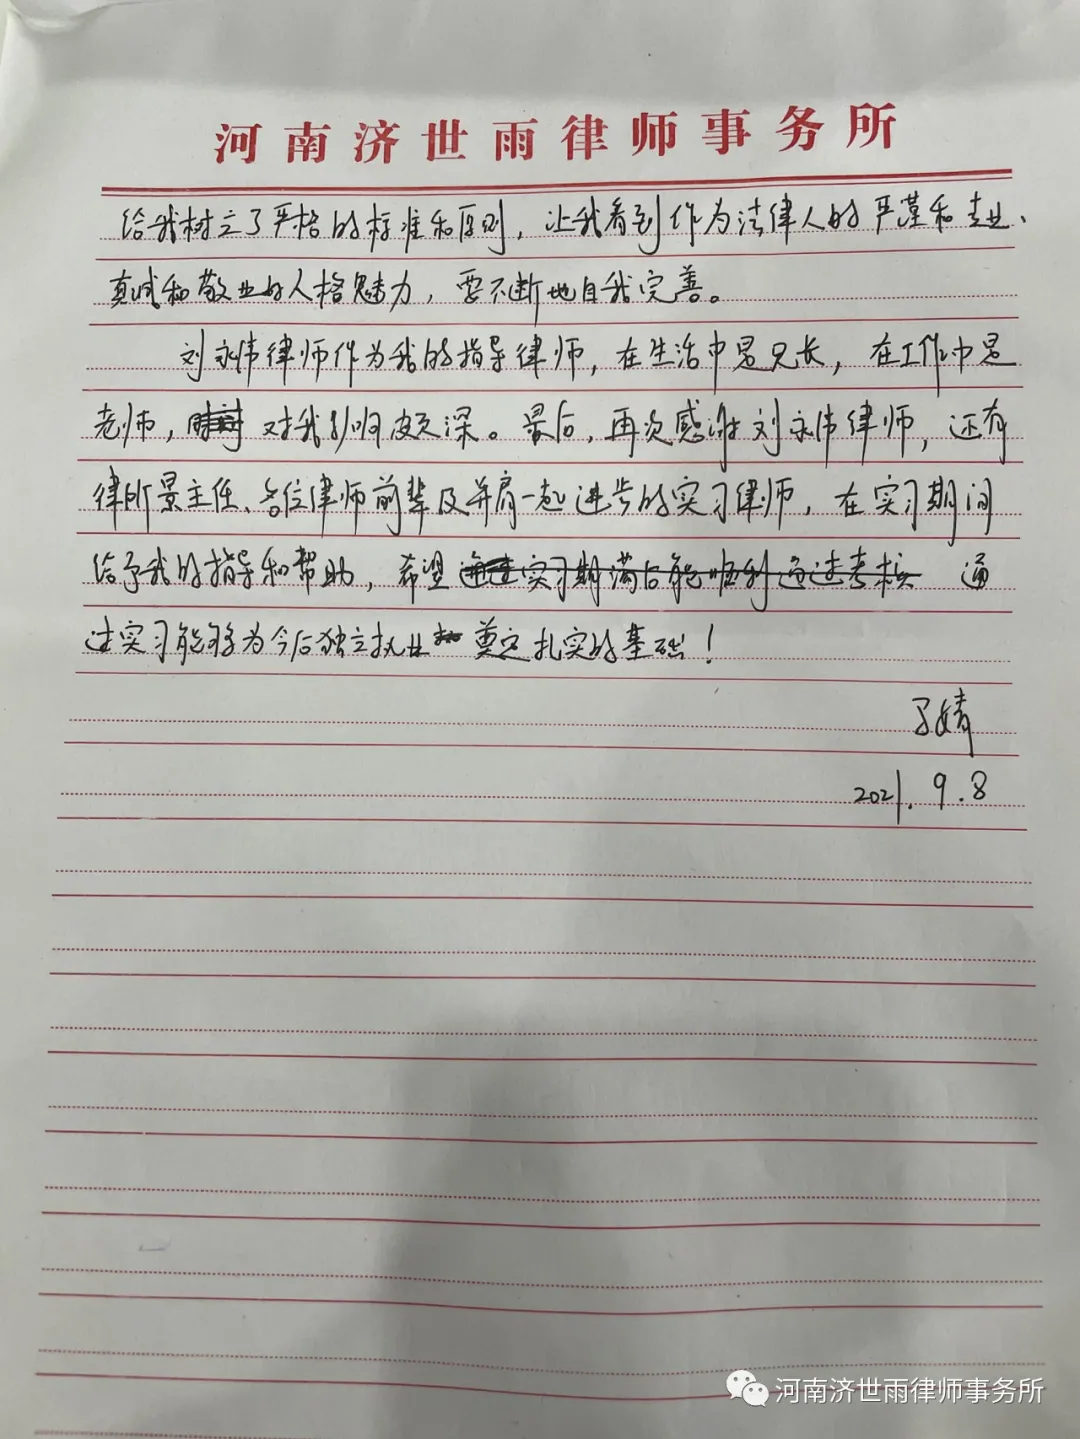 河南济世雨律师事务所
给我树立了严格的标准和原则，让我看到作为法律人的严谨和专业、
真诚和敬业的人格魅力，要不断地自我完善。
刘永伟律师作为我的指导律师，在生活中是兄长，在工作中是
老师，对我影响颇深。最后，再次感谢刘永伟律师，还有
律所景主任、各位律师前辈及并肩一起进步的实习律师，在实习期间
给予我的指导和帮助，希望实习期满后能顺利通过考核 通
过实习能够为今后独立执业奠定扎实的基础！
婧
2021.9.8
河南济世雨律师事务所